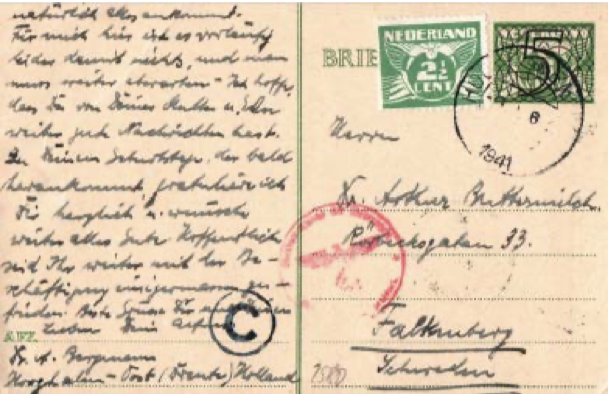 natürlich alles ankommt.
Für mich hier ist es vorläufig
leider damit nichts, und man
muss weiter abwarten - Ich hoffe,
dass Du von Deiner Mutter u.
weiter gute Nachrichten hast.
Zu Deinem Geburtstage, der bald
herankommt, gratuliere ich
Dir herzlich u. wünsche
weiter alles Gute. Hoffentlich
seid Ihr weiter mit der Be-
schäftigung einigermassen zu-
frieden. Grüsse Dir
Lieben Dein
AFZ.
Dr. A. Bergmann
Hooghalen - Oost (Drente) Holland
C
BRIE
NEDERLAND
2½
CENT
5
1941
Herrn
Dr. Arthur Buttermilch
Rörbecksgatan 33.
Falkenberg
Schweden